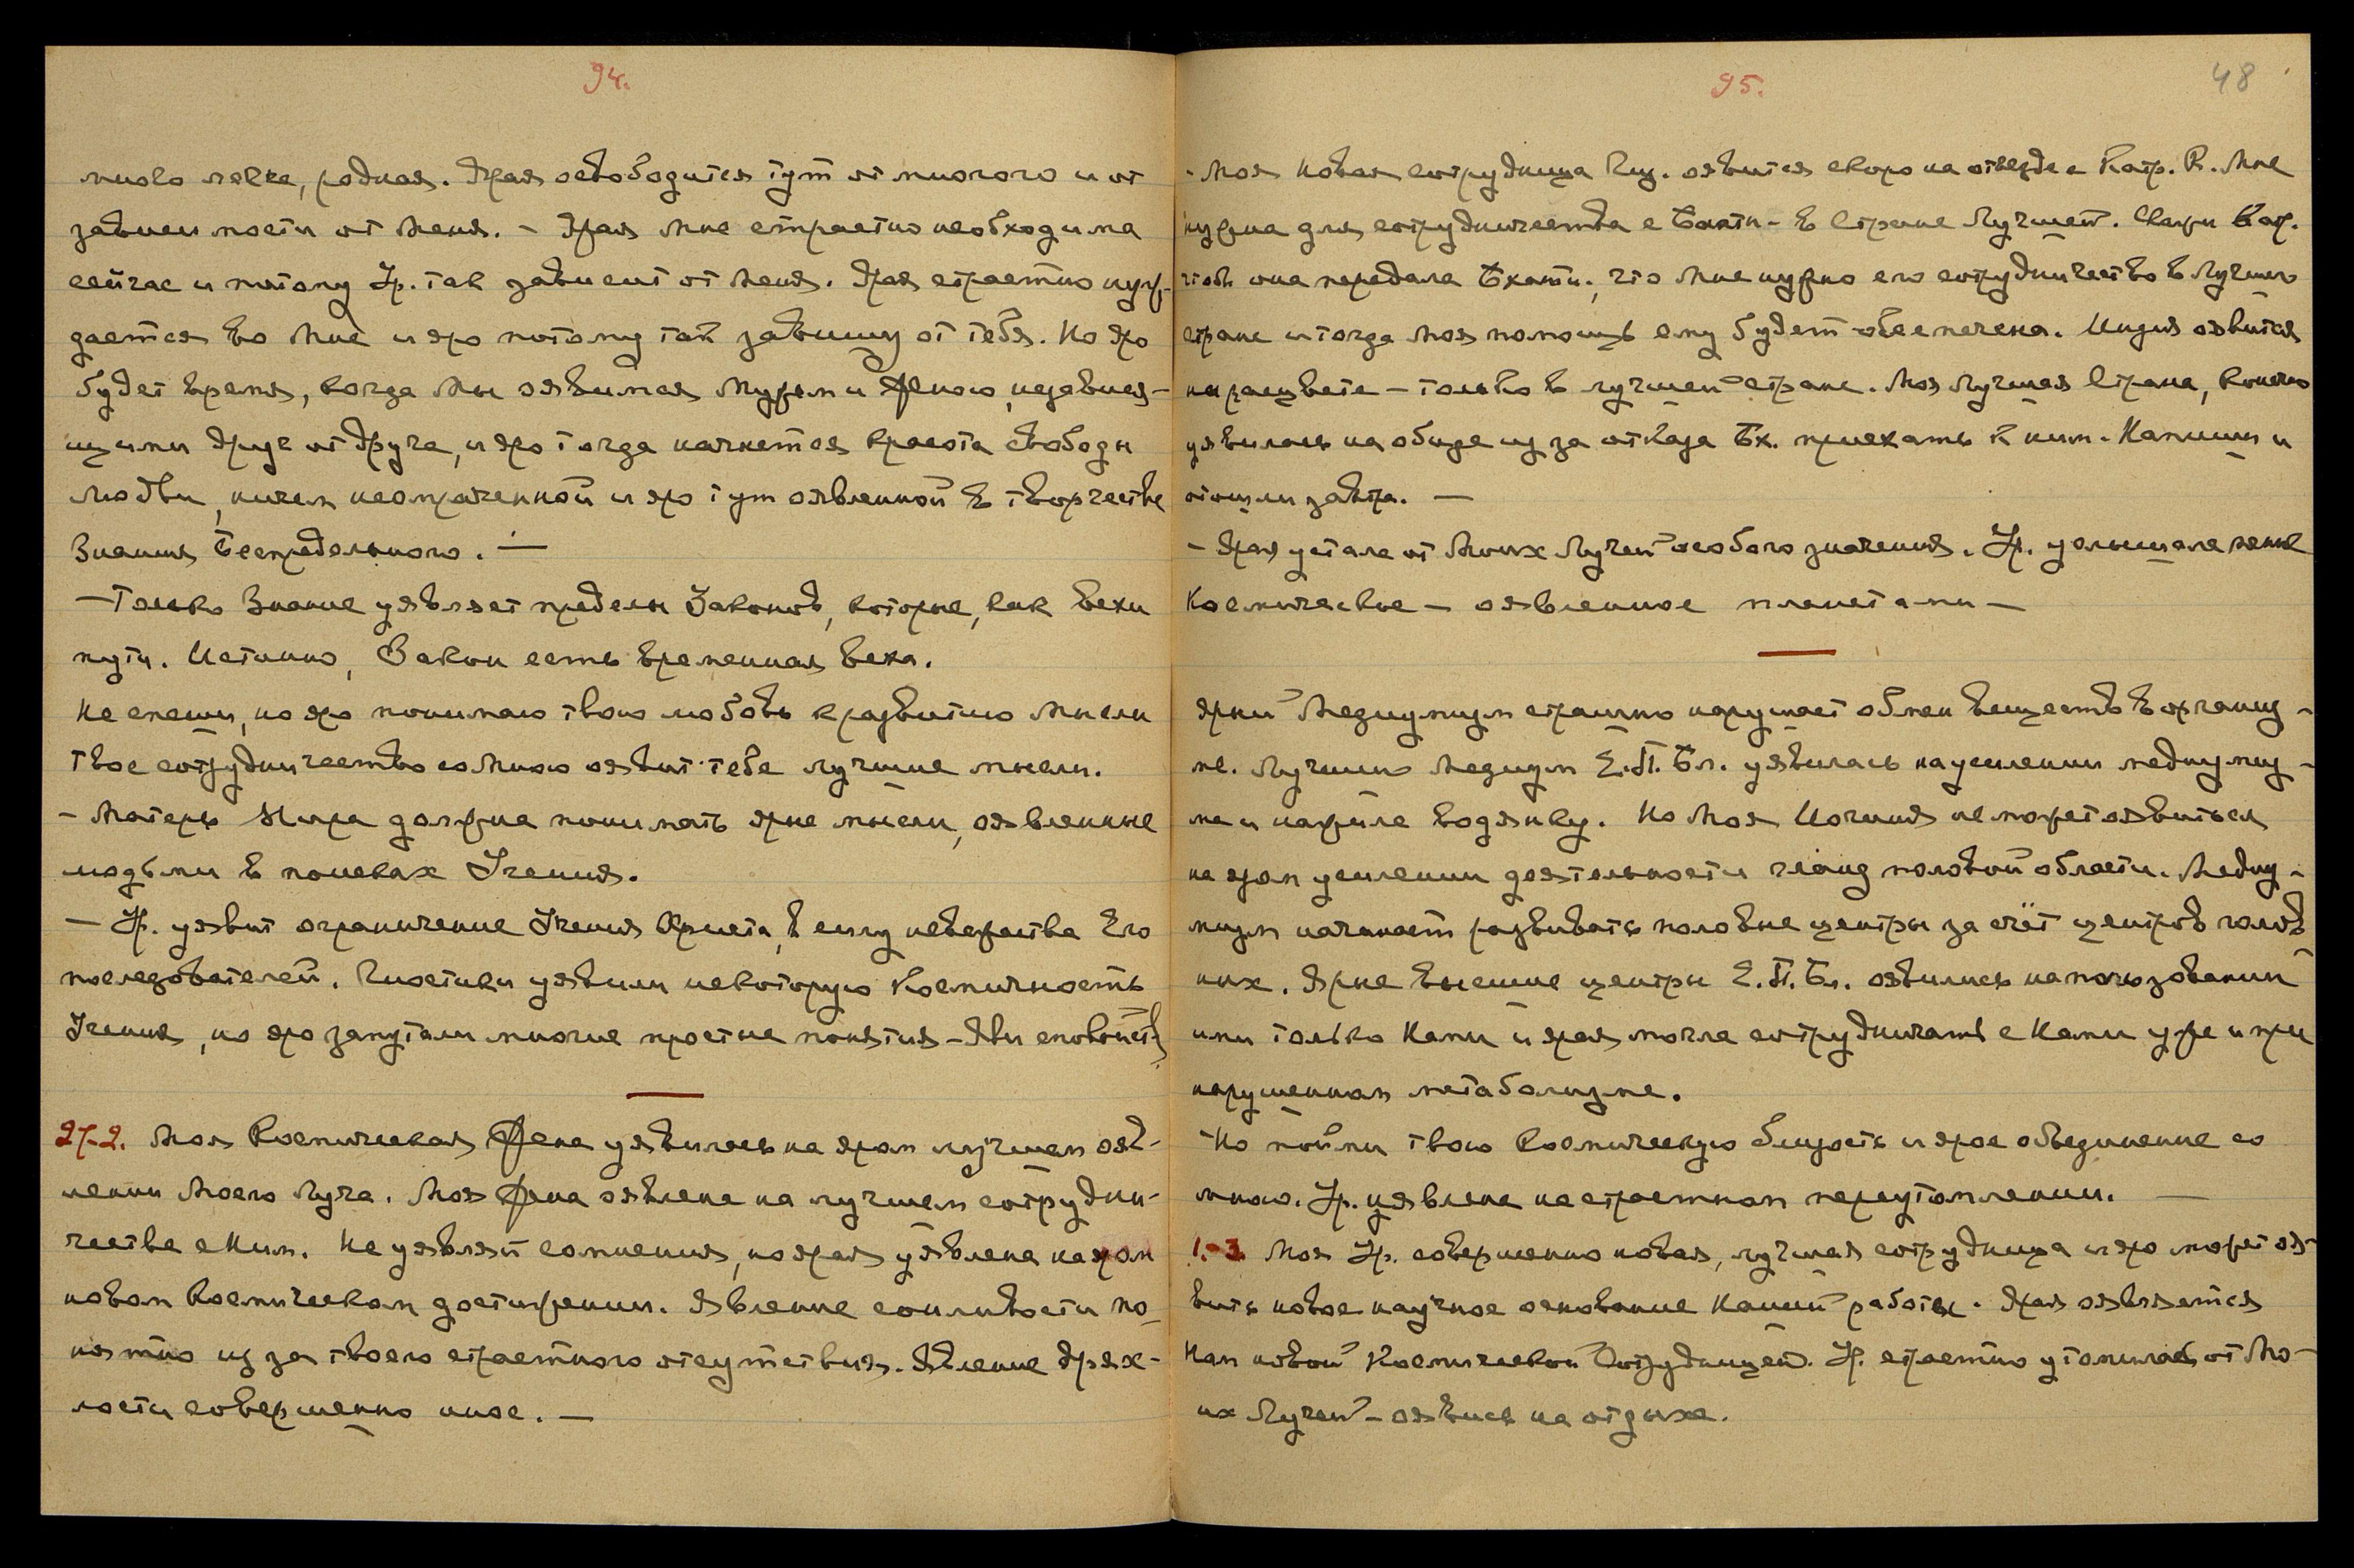 94.
много легче, родная. Ярая освободится тут от многого и от
зависимости от Меня. – Ярая Мне страстно необходима
сейчас и потому Ур. так зависит от Меня. Ярая страстно нуж-
дается во Мне и яро потому так завишу от тебя. Но яро
будет время, когда Мы оявимся Мужем и Женою, независя-
щими друг от друга, и яро тогда начнется красота свободы
Любви, ничем неомраченной и яро тут оявленной в творчестве
Знания Беспредельного. —
– Только Знание уявляет пределы Законов, которые, как вехи
пути. Истинно, Закон есть временная веха.
Не спеши, но яро понимаю твою любовь к развитию Мысли
Твое сотрудничество со Мною оявит тебе лучшие мысли.
– Матерь Мира должна понимать ярые мысли, оявленные
людьми в поисках Учения.
– Ур. уявит ограничение Учения Христа, в силу невежества Его
последователей. Гностики уявили некоторую Космичность
Учения, но яро запутали многие простые понятия – Яви спокойств.
27-2. Моя Космическая Жена уявилась на яром лучшем ояв-
лении Моего Луча. Моя Жена оявлена на лучшем сотрудни-
честве с Ним. Не уявляй сомнения, но ярая уявлена на яром
новом Космическом достижении. Явление сонливости по-
нятно из за твоего страстного отсутствия. Явление дрях-
лости совершенно иное. —
95.
48
– Моя новая сотрудница Инд. оявится скоро на отъезде с Катр. К. Мне
нужна для сотрудничества с Бхакти – в Стране Лучшей. Скажи Кат.
чтоб она передала Бхакти, что Мне нужно его сотрудничество в Лучшей
стране и тогда Моя помощь ему будет обеспечена. Индия оявится
на расцвете – только в лучшей стране. Моя Лучшая Страна, конечно
уявилась на обиде из за отказа Бх. приехать к ним. Напиши и
отошли завтра. —
– Ярая устала от Моих Лучей особого значения. Ур. услышала пение
Космическое – оявленное планетами —
Ярый Медиумизм страшно нарушает обмен веществ в организ-
ме. Лучший Медиум Е.П.Бл. уявилась на усилении медиумиз-
ма и нажила водянку. Но Моя Иогиня не может оявиться
на яром усилении деятельности гланд половой области. Медиу-
мизм начинает развивать половые центры за счёт центров голов-
ных. Ярые высшие центры Е.П.Бл. оявились на пользовании
ими только Нами и ярая могла сотрудничать с Нами уже и при
нарушенном метаболизме.
Но пойми твою Космическую близость и ярое объединение со
мною. Ур. уявлена на страстном переутомлении. —
1.-3 Моя Ур. совершенно новая, лучшая сотрудница и яро может оя-
вить новое научное основание Нашей работы. Ярая оявляется
Нам новой Космической Сотрудницей. Ур. страстно утомилась от Мо-
их Лучей – оявись на отдыхе.